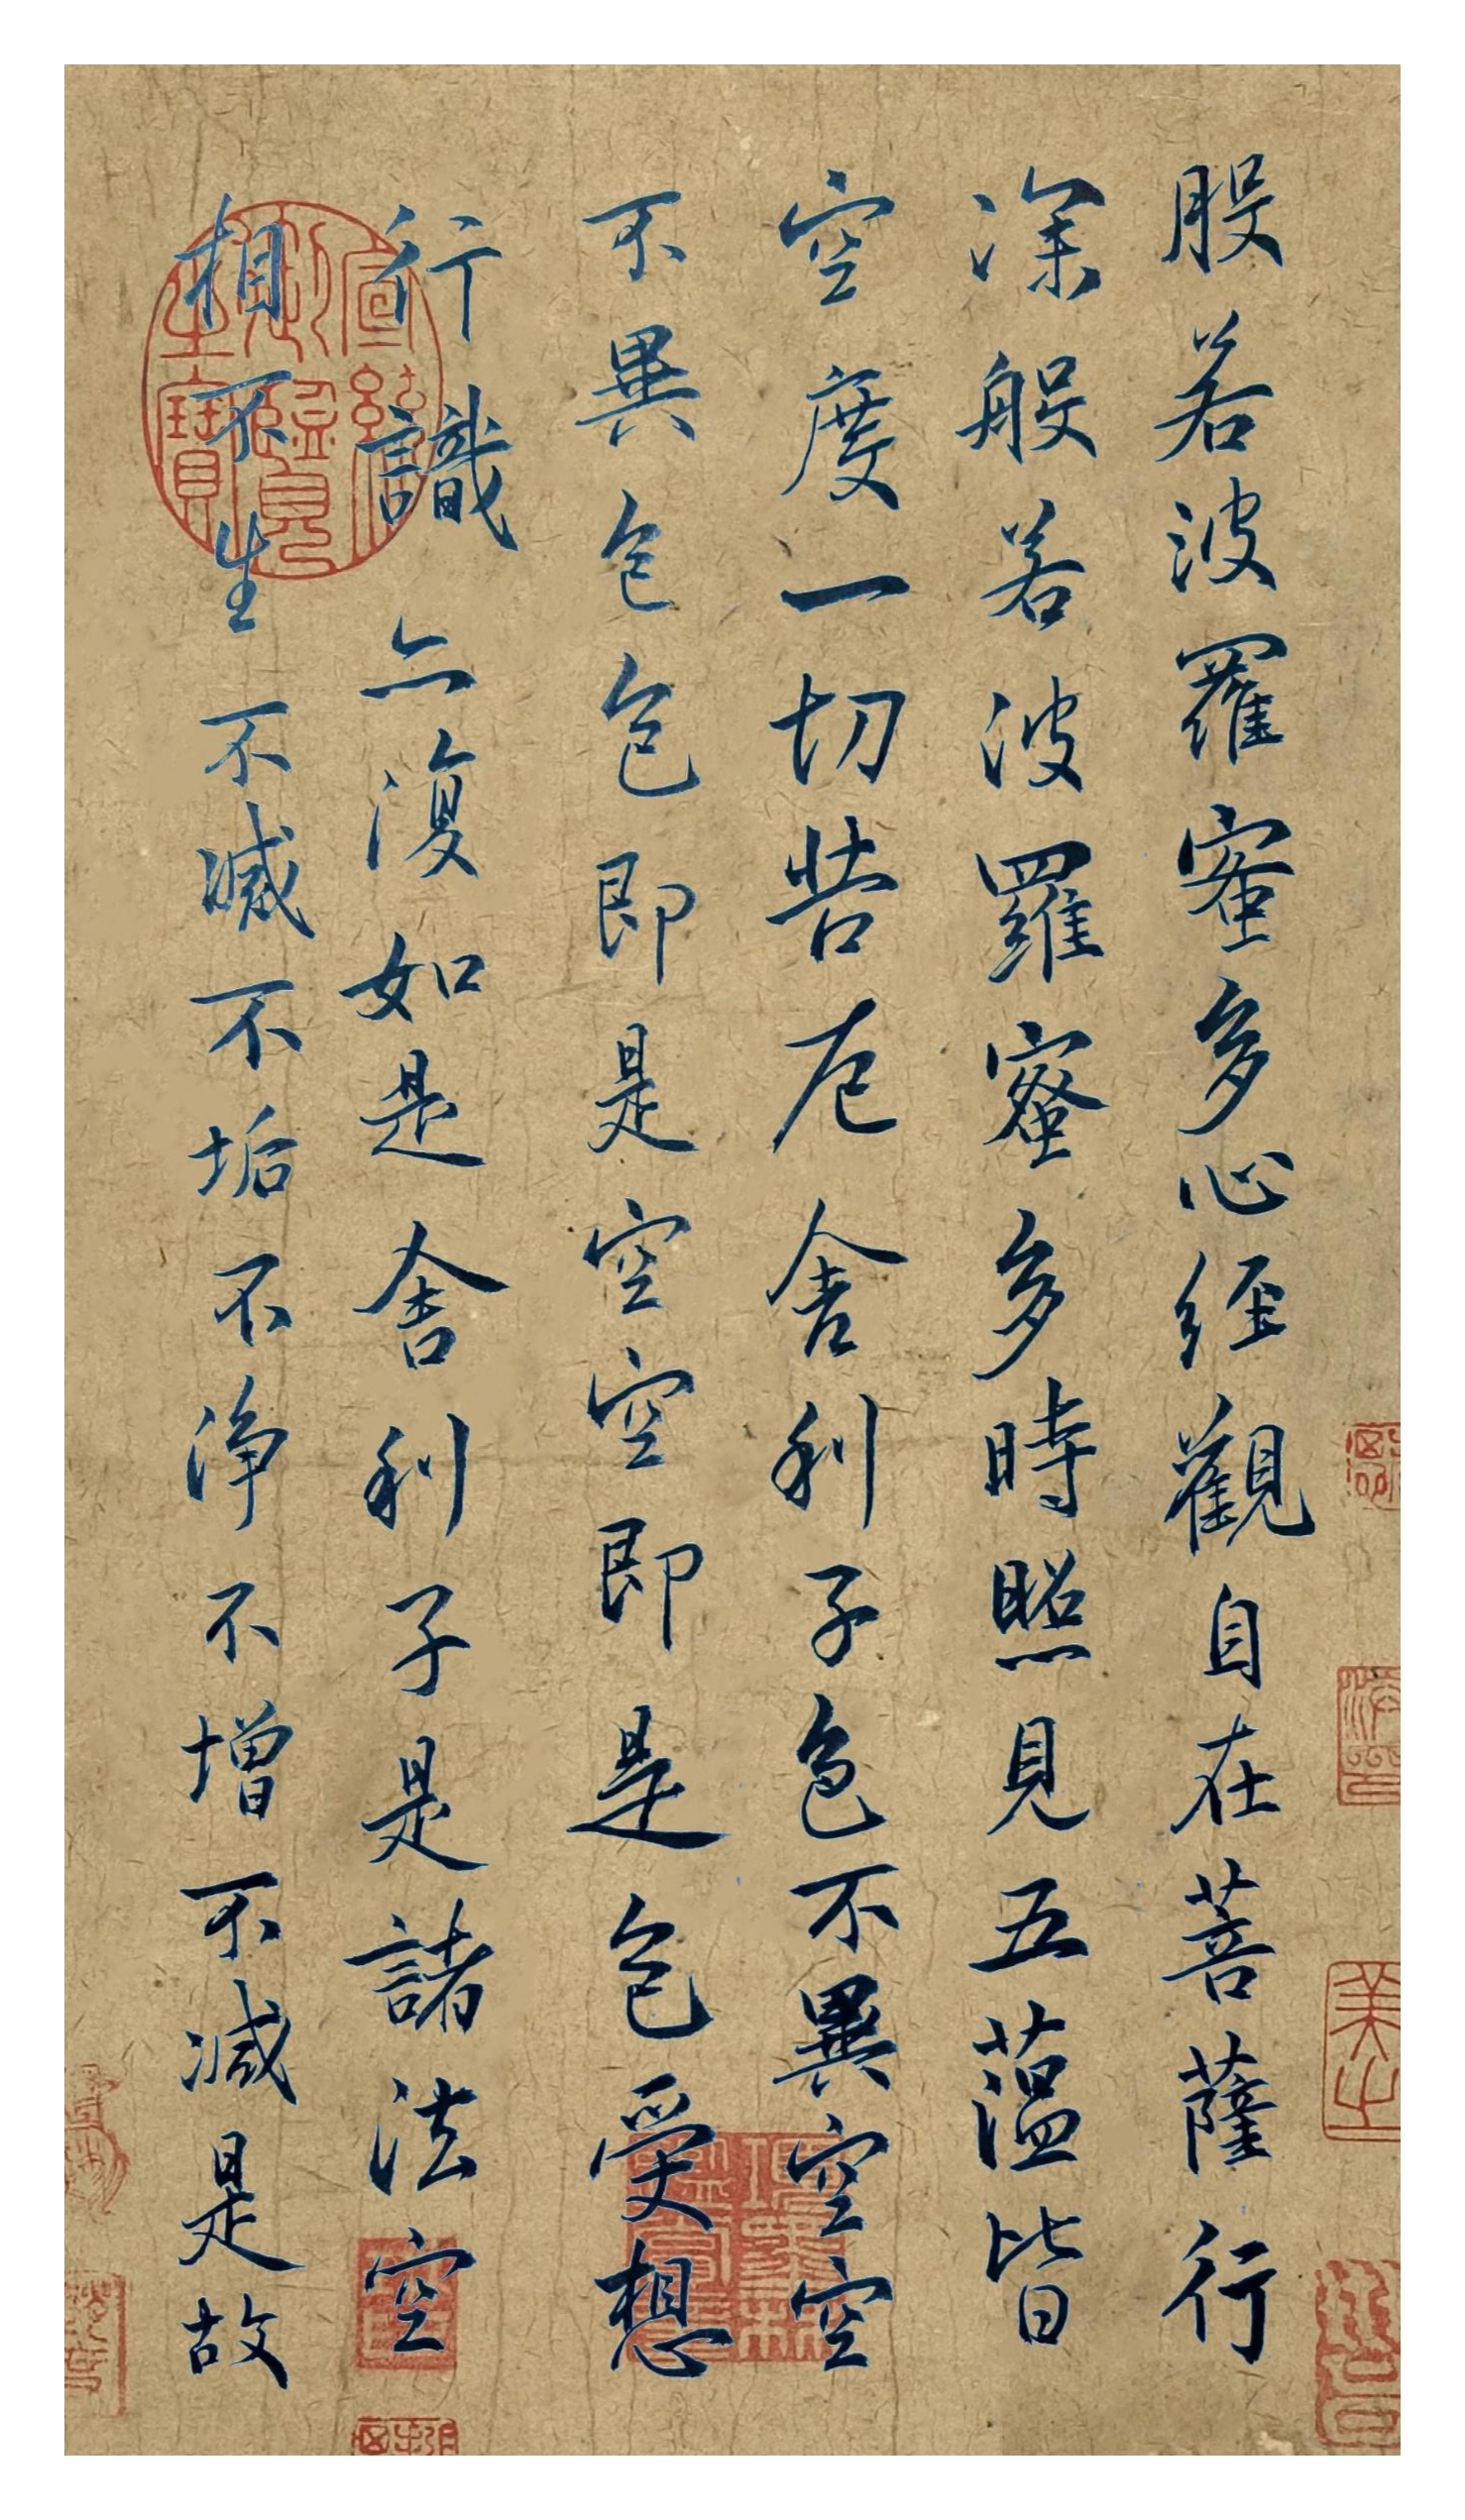 般若波羅蜜多心經觀自在菩薩行
深般若波羅蜜多時照見五蘊皆
空度一切苦厄舍利子色不異空空
不異色色即是空空即是色受想
行識亦復如是舍利子是諸法空
相不生不滅不垢不淨不增不減是故
宣統御覽之寶